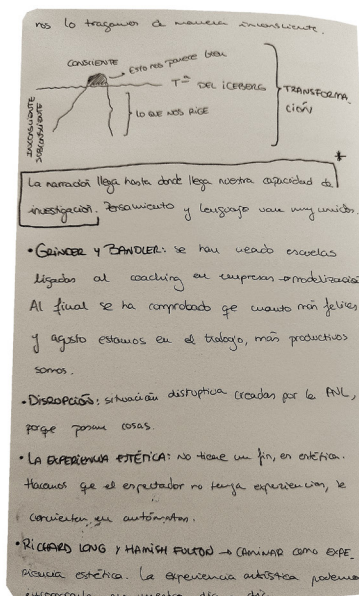 nos lo tragamos de manera inconsciente.
CONSCIENTE
Esto nos parece bien
Tª DEL ICEBERG
TRANSFORMA-
CIÓN
LO QUE NOS RIGE
INCONSCIENTE
SUBCONSCIENTE
La narración llega hasta donde llega nuestra capacidad de
investigación. Pensamiento y lenguaje van muy unidos.
• GRINDER Y BANDLER: se han creado escuelas
ligadas al coaching en empresas → modelización
Al final se ha comprobado qe cuanto más felices
y agusto estamos en el trabajo, más productivos
somos.
• DISRUPCIÓN: situación disruptiva creadas por la PNL,
porqe pasan cosas.
• LA EXPERIENCIA ESTÉTICA: No tiene un fin, en estética.
Hacemos que el espectador no tenga experiencias, se
convierten en autómatas.
• RICHARD LONG Y HAMISH FULTON → CAMINAR COMO EXPE-
riencia estética. La experiencia artística podemos
en nuestro día a día